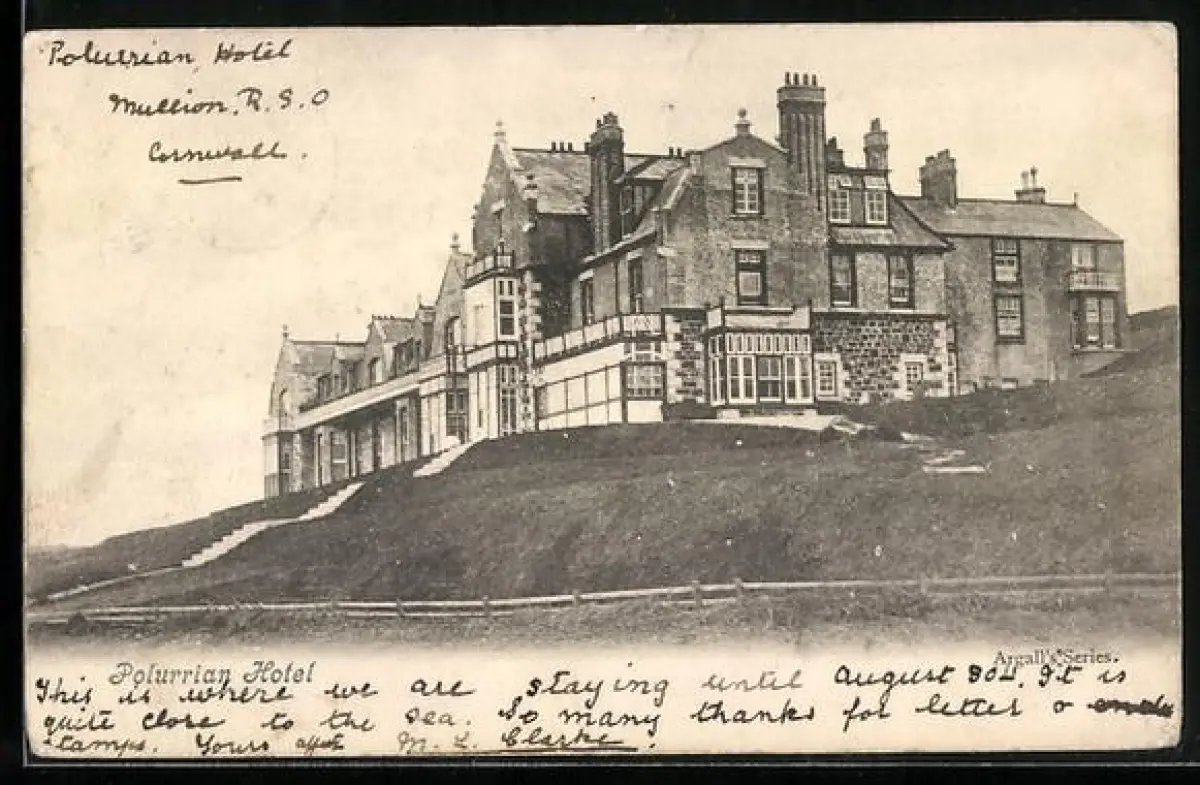 Polurrian Hotel
Mullion. R.S.O
Cornwall.
Polurrian Hotel
Argall's Series.
This is where we are staying until August 30th. It is
quite close to the sea. So many thanks for letter &
stamps. Yours affect M. L. Clarke.